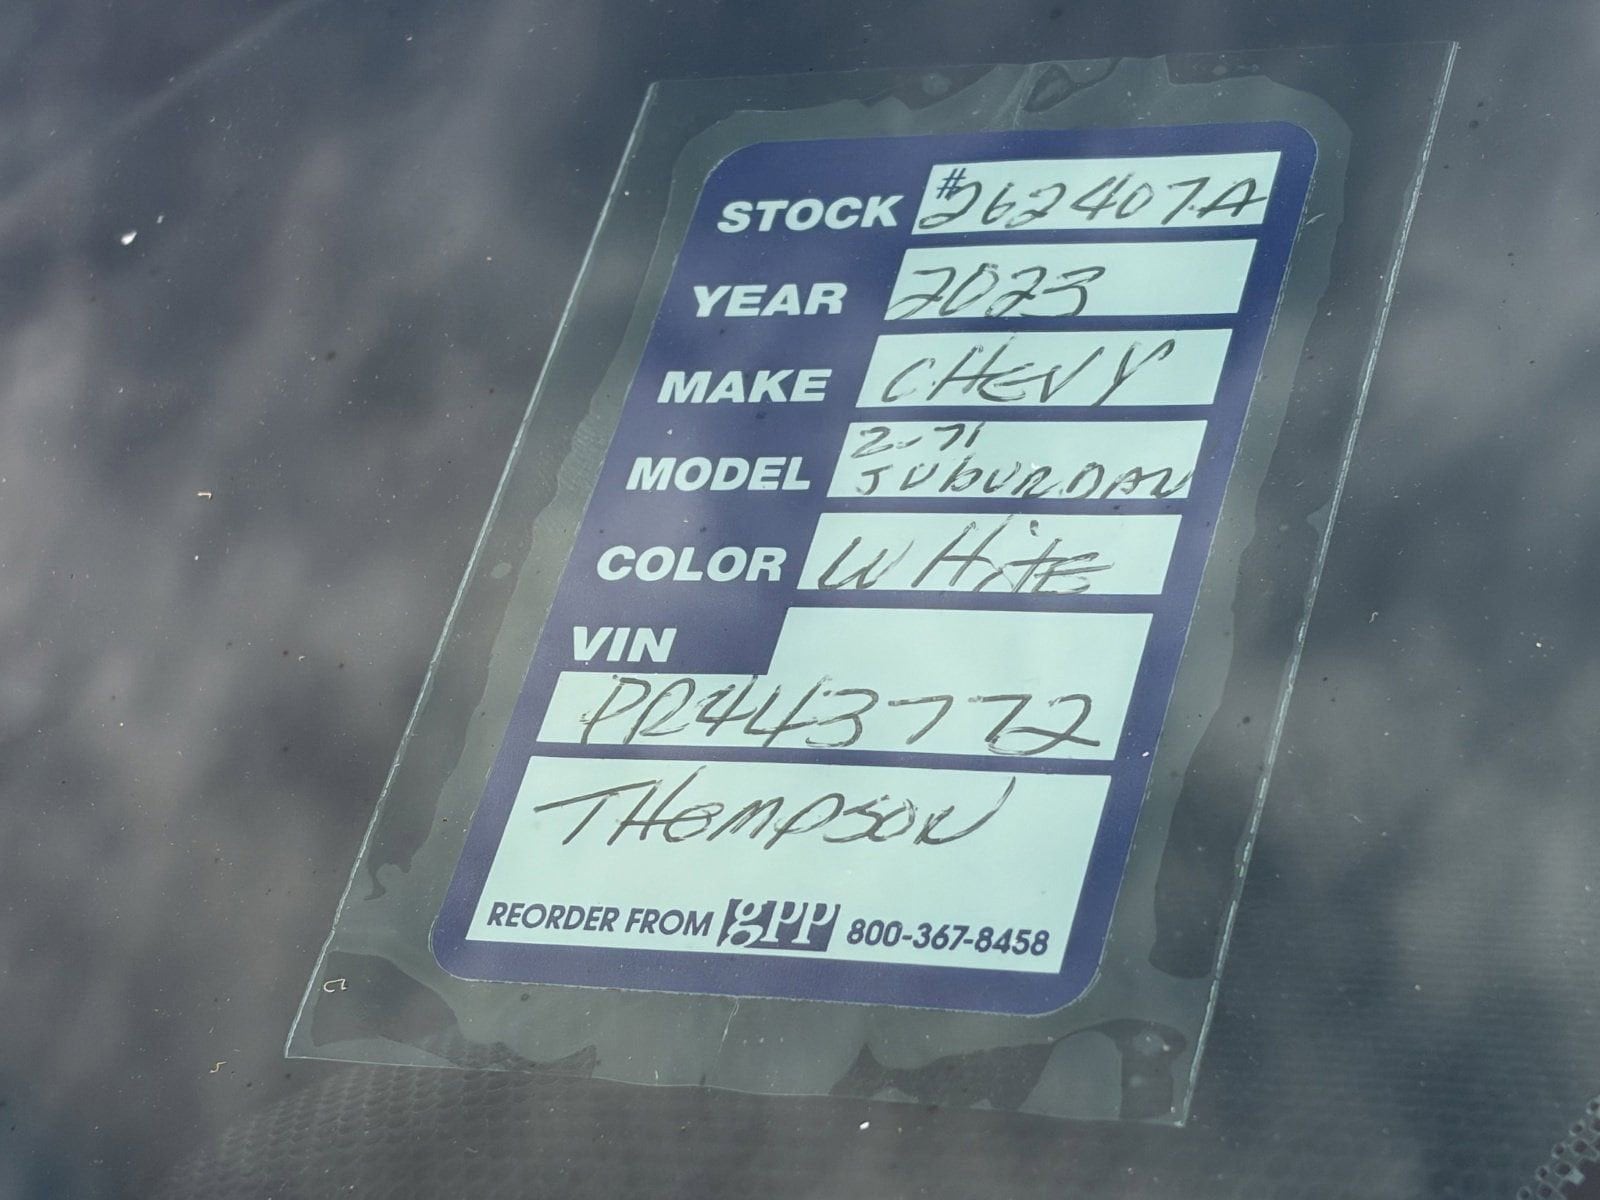 STOCK #262407A
YEAR 2023
MAKE CHEVY
MODEL Z-71
SUbURBAN
COLOR WHitE
VIN
PR443772
THOMPSON
REORDER FROM gPP 800-367-8458